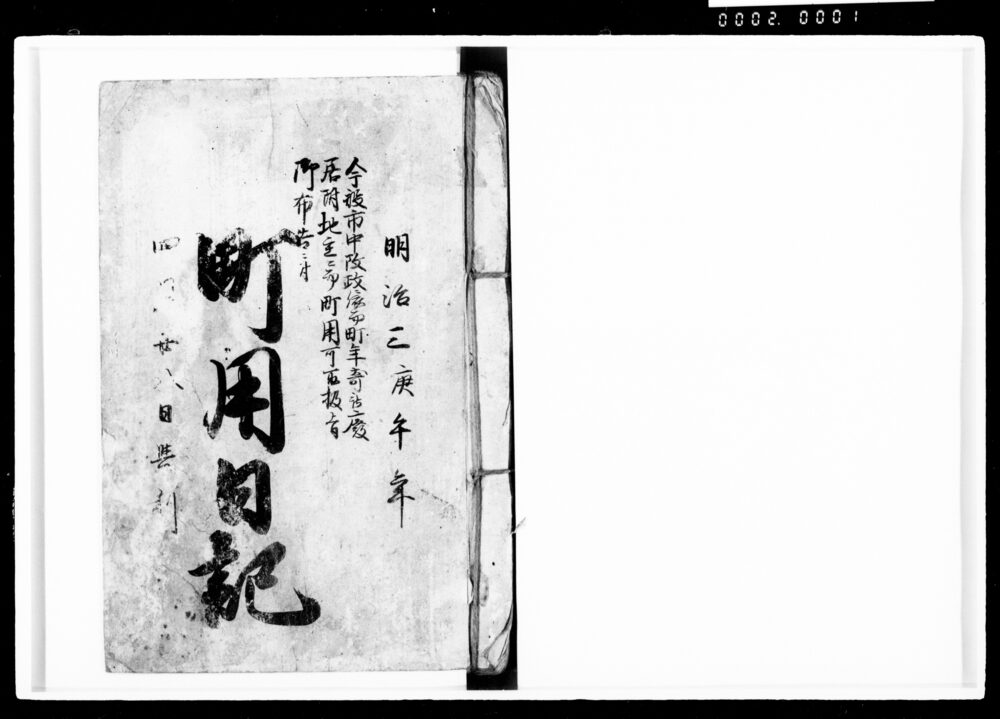 0002.0001
明治三庚午年
今般市中改政ニ付町年寄被廢
居附地主ニ而町用可取扱旨
御布告ニ付
町用日記
四月廿八日